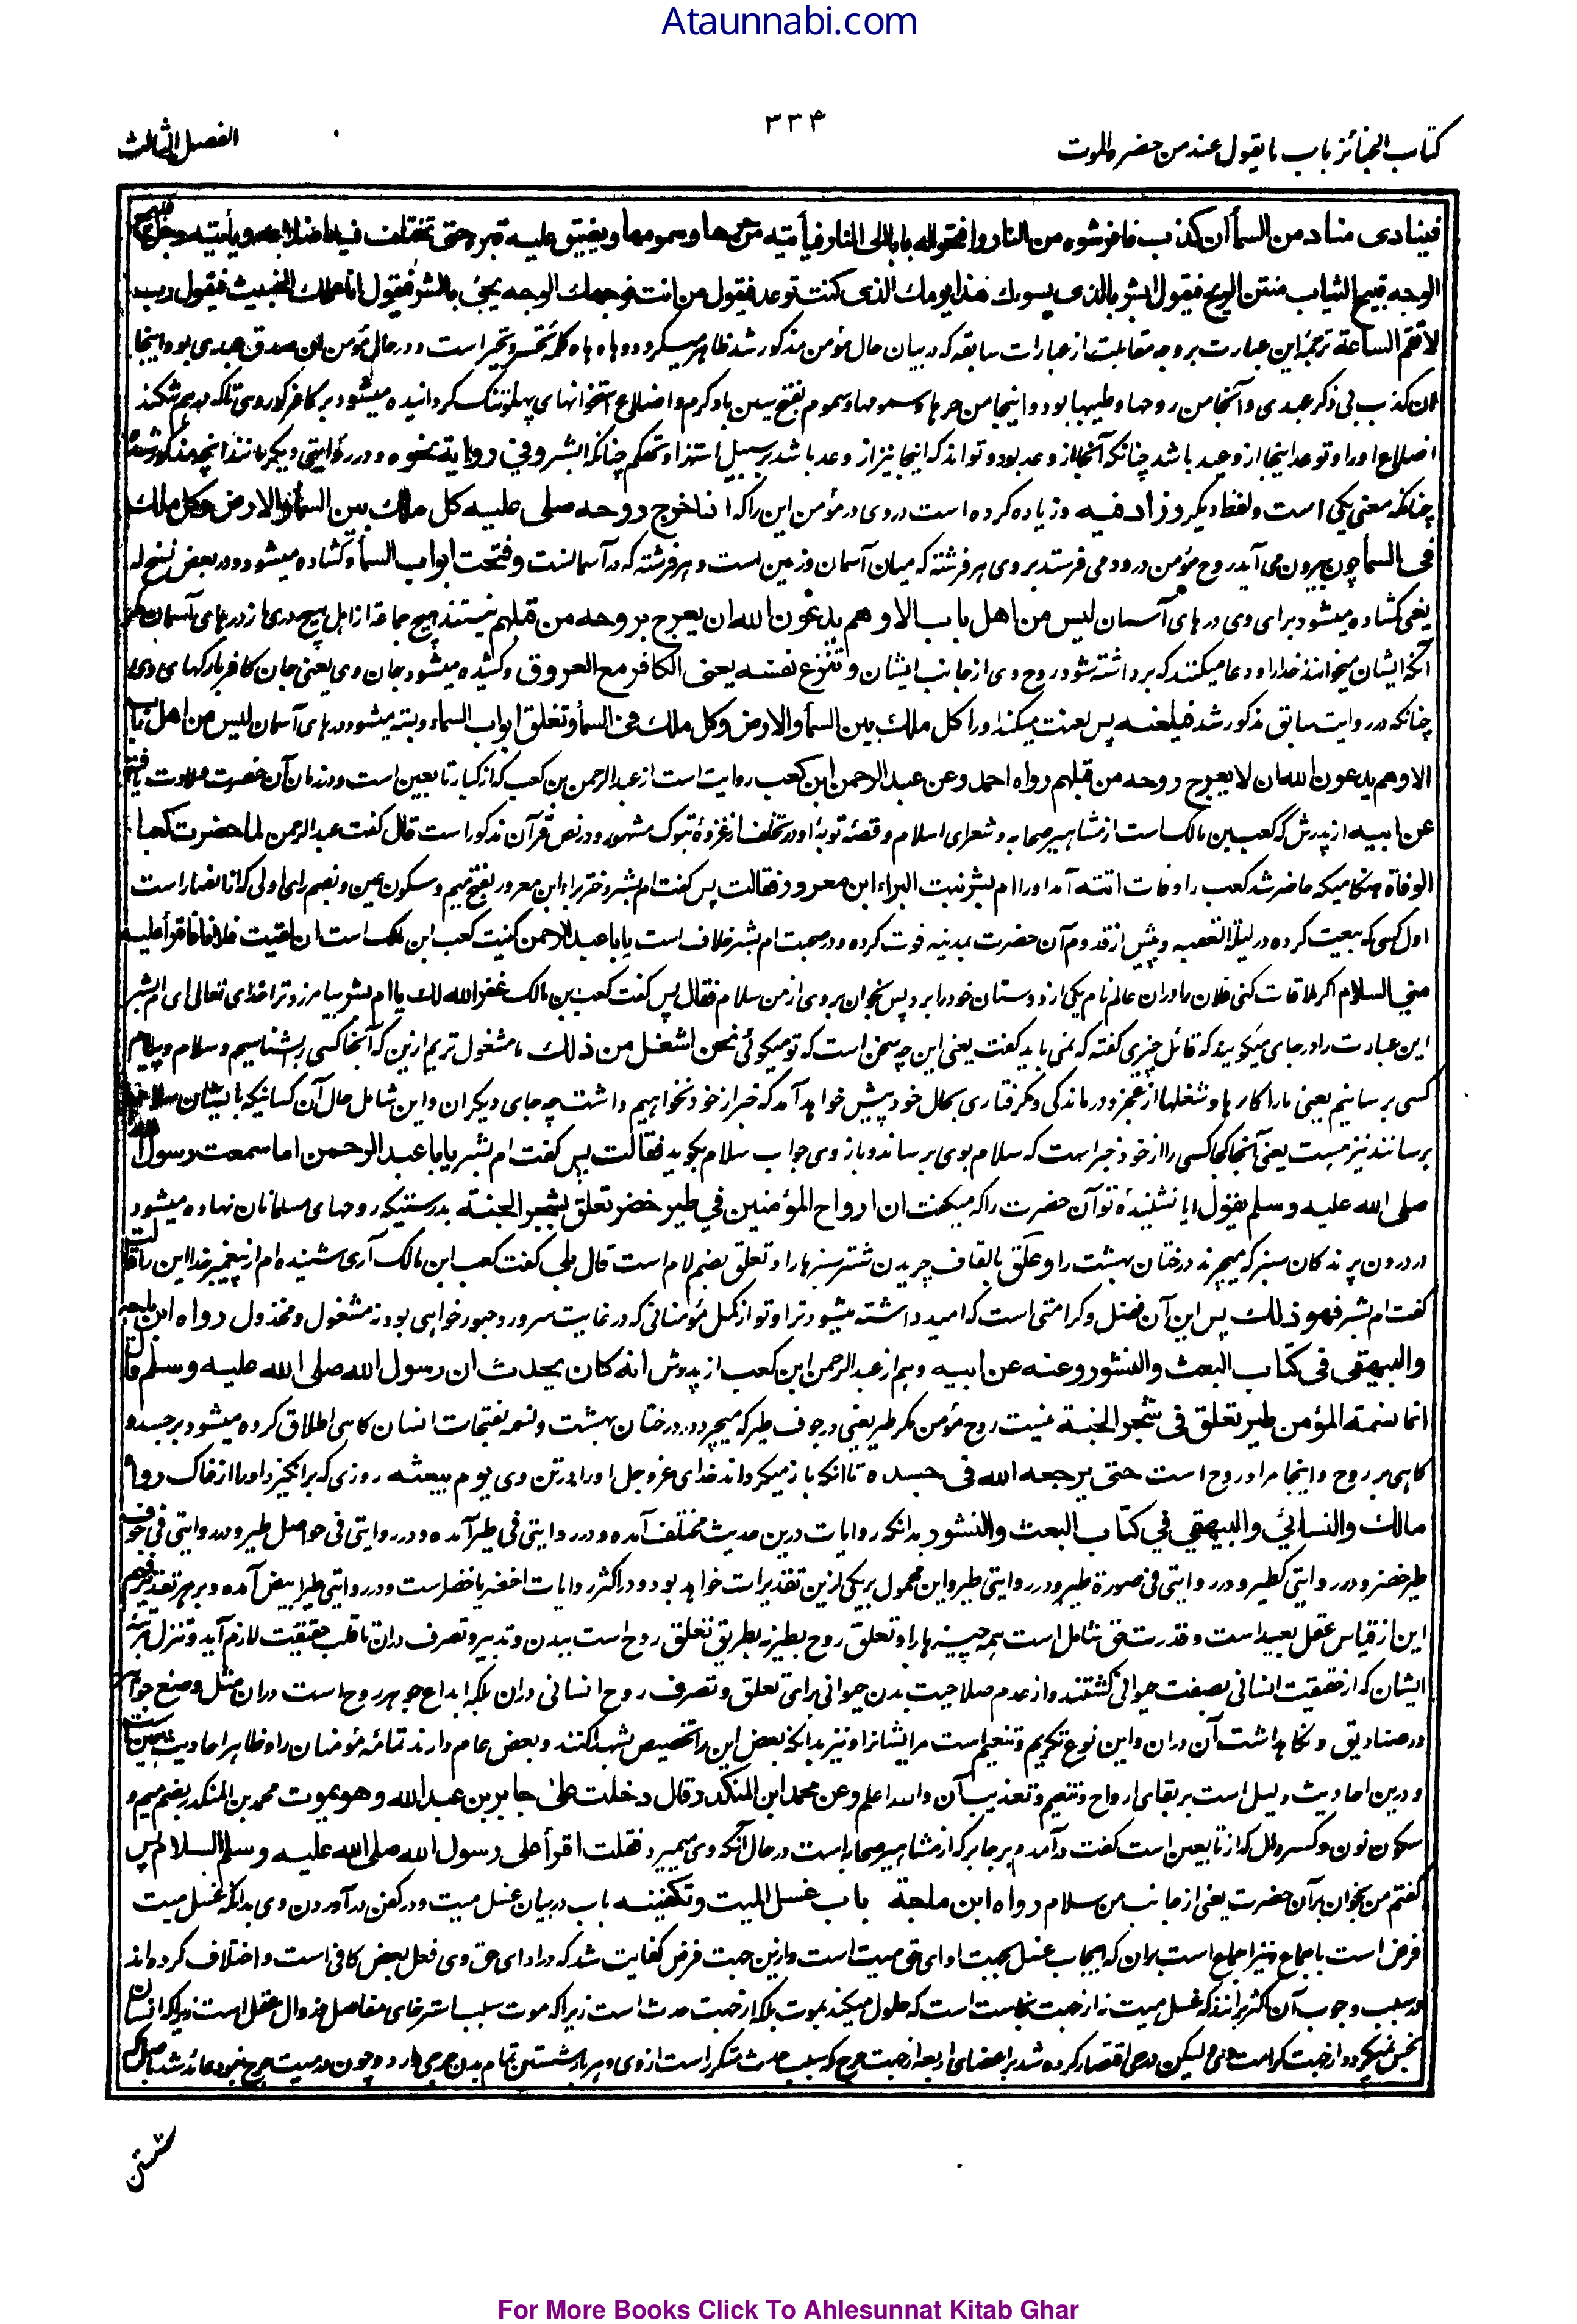 Ataunnabi.com
۳۳۴
كتاب الجنائز باب ما يقول عند من حضره الموت
الفصل الثالث
فينادى مناد من السمأ ان كذب فافرشوه من النار وافتحوا له بابا الى النار فيأتيه من حرها و سمومها ويضيق عليه قبره حتى تختلف فيه اضلاعه ويأتيه رجل قبيح
الوجه قبيح الثياب منتن الريح فيقول ابشر بالذى يسوءك هذا يومك الذى كنت توعد فيقول من انت فوجهك الوجه يجئ بالشر فيقول انا عملك الخبيث فيقول رب
لا تقم الساعة ترجمۀ این عبارت بر وجه مقابلت از عبارات سابقه که در بیان حال مؤمن مذکور شد ظاهر میگردد و هاه هاه کلمۀ تحسر و تحیر است و در حال مؤمن ان صدق عبدی بود و اینجا
ان کذب بی ذکر عبدی و آنجا من روحها و طیبها بود و اینجا من حرها و سمومها و سموم بفتح سین باد گرم و اضلاع استخوانهای پهلو تنک گردانیده میشود بر کافر گور وی تا آنکه بهم میشکند
اضلاع او را و توعد اینجا از وعید باشد چنانکه آنجا از وعد بود و تواند که اینجا نیز از وعد باشد بر سبیل استهزا و تهکم چنانکه ابشر وفي رواية نحوه و در روایتی دیگر مانند آنچه مذکور شد
چنانکه معنی یکی است و لفظ دیگر وزاد فيه و زیاده کرده است در وی در مؤمن این را که اذا خرج روحه صلى عليه كل ملك بين السمأ والارض وكل ملك
فى السمأ چون بیرون می آید روح مؤمن درود می فرستد بر وی هر فرشته که میان آسمان و زمین است و هر فرشته که در آسمانست وفتحت ابواب السمأ و کشاده میشود و در بعض نسخ له
یعنی کشاده میشود برای وی درهای آسمان ليس من اهل باب الا وهم يدعون الله ان يعرج بروحه من قبلهم نیستند هیچ جماعة از اهل هیچ دری از درهای آسمان مگر
آنکه ایشان میخوانند خدا را و دعا میکنند که برداشته شود روح وی از جانب ایشان وتنزع نفسه يعنى الكافر مع العروق و کشیده میشود جان وی یعنی جان کافر با رگهای وی
چنانکه در روایت سابق مذکور شد فيلعنه پس لعنت میکند او را كل ملك بين السمأ والارض وكل ملك فى السمأ وتغلق ابواب السماء و بسته میشود درهای آسمان ليس من اهل باب
الا وهم يدعون الله ان لا يعرج روحه من قبلهم رواه احمد وعن عبد الرحمن ابن كعب روایت است از عبد الرحمن بن کعب که از کبار تابعین است و در زمان آن حضرت ولادت یافته
عن ابيه از پدرش که کعب بن مالک است از مشاهیر صحابه و شعرای اسلام و قصۀ توبۀ او در تخلف از غزوۀ تبوک مشهور و در نص قرآن مذکور است قال گفت عبد الرحمن لما حضرت كعبا
الوفاة هنگامیکه حاضر شد کعب را وفات اتته آمد او را ام بشر بنت البراء ابن معرور فقالت پس گفت ام بشر دختر براء ابن معرور بفتح میم و سکون عین و بضم رای اولی که از انصار است
اول کسی که بیعت کرده در لیلة العقبه و پیش از قدوم آن حضرت بمدینه فوت کرده و در صحبت ام بشر خلاف است يا ابا عبد الرحمن کنیت کعب ابن مالک است ان لقيت فلانا فاقرأ عليه
منى السلام اگر ملاقات کنی فلان را در آن عالم نام یکی از دوستان خود را برد پس بخوان بر وی از من سلام فقال پس گفت کعب ابن مالک غفر الله لك يا ام بشر بیامرزد ترا خدای تعالی ای ام بشر
این عبارت را در جای میگویند که قائل چیزی گفته که نمی باید گفت یعنی این چه سخن است که تو میگوئی نحن اشغل من ذلك ما مشغول تریم ازین که آنجا کسی را بشناسیم و سلام و پیام
کسی برسانیم یعنی ما را کارها و شغلها از عجز و درماندگی و گرفتاری بحال خود پیش خواهد آمد که خبر از خود نخواهیم داشت چه جای دیگران و این شامل حال آن کسانیکه بایشان سلام
برسانند نیز هست یعنی آنجا کجا کسی را از خود خبر است که سلام بوی برساند و باز وی جواب سلام بگوید فقالت پس گفت ام بشر يا ابا عبد الرحمن اما سمعت رسول الله
صلى الله عليه وسلم يقول ایا نشنیدۀ تو آن حضرت را که میگفت ان ارواح المؤمنين في طير خضر تعلق بشجر الجنة بدرستیکه روحهای مسلمانان نهاده میشود
در درون پرندگان سبز که میچرند درختان بهشت را و علق بالقاف چریدن شتر سبزها را و تعلق بضم لام است قال بلى گفت کعب ابن مالک آری شنیده ام از پیغمبر خدا این را قالت
گفت ام بشر فهو ذلك پس این آن فضل و کرامتی است که امید داشته میشود ترا و تو از کمل مؤمنانی که در غایت سرور و حبور خواهی بود نه مشغول و مخذول رواه ابن ماجه
والبيهقى فى كتاب البعث والنشور وعنه عن ابيه و هم از عبد الرحمن ابن کعب از پدرش انه كان يحدث ان رسول الله صلى الله عليه وسلم قال
انما نسمة المؤمن طير تعلق فى شجر الجنة نیست روح مؤمن مگر طیر یعنی در جوف طیر که میچرد در درختان بهشت و نسمه بفتحات انسان گاهی اطلاق کرده میشود بر جسد و
گاهی بر روح و اینجا مراد روح است حتى يرجعه الله فى جسده تا آنکه باز میگرداند خدای عز و جل او را در تن وی يوم يبعثه روزی که بر انگیزد او را از خاک رواه
مالك والنسائي والبيهقي في كتاب البعث والنشور بدانکه روایات درین حدیث مختلف آمده و در روایتی فی طیر آمده و در روایتی فی حواصل طیر و در روایتی فی جوف
طیر خضر و در روایتی کطیر و در روایتی فی صورة طیر و در روایتی طیر و این محمول بر یکی ازین تقدیرات خواهد بود و در اکثر روایات اخضر یا خضر است و در روایتی طیر ابیض آمده و بر هر تقدیر فهم
این از قیاس عقل بعید است و قدرت حق شامل است همه چیزها را و تعلق روح بطیر نه بطریق تعلق روح است ببدن و تدبیر و تصرف در آن تا قلب حقیقت لازم آید و تنزل مرتبۀ
ایشان که از حقیقت انسانی بصفت حیوانی گشتند و از عدم صلاحیت بدن حیوانی برای تعلق و تصرف روح انسانی در آن بلکه ابداع جوهر روح است در آن مثل وضع جواهر
در صنادیق و نگاهداشت آن در آن و این نوع تکریم و تنعیم است مر ایشانرا و نیز بدانکه بعض این را تخصیص بشهدا کنند و بعض عام دارند تمامۀ مؤمنان را و ظاهر احادیث همین است
و درین احادیث دلیل است بر بقای ارواح و تنعیم و تعذیب آن والله اعلم وعن محمد ابن المنكدر قال دخلت على جابر بن عبد الله وهو يموت محمد بن المنکدر بضم میم و
سکون نون و کسر دال که از تابعین است گفت در آمدم بر جابر که از مشاهیر صحابه است در حال آنکه وی میمیرد فقلت اقرأ على رسول الله صلى الله عليه وسلم السلام پس
گفتم من بخوان بر آن حضرت یعنی از جانب من سلام رواه ابن ماجة باب غسل الميت وتكفينه باب در بیان غسل میت و در کفن در آوردن وی بدانکه غسل میت
فرض است باجماع و نیز اجماع است بر آن که ایجاب غسل بجهت ادای حق میت است و ازین جهت فرض کفایت شد که در ادای حق وی فعل بعض کافی است و اختلاف کرده اند
در سبب وجوب آن اکثر بر انند که غسل میت نه از جهت نجاست است که حلول میکند بموت بلکه از جهت حدث است زیرا که موت سبب استرخای مفاصل و زوال عقل است زیرا که انسان
نجس نمیگردد از جهت کرامت وی و لیکن در حی اقتصار کرده شد بر اعضای اربعه از جهت حرج که سبب حدث متکرر است از وی و هر بار شستن تمام بدن حرجی دارد و چون در میت حرج نبود عائد شد باصل که
شستن
For More Books Click To Ahlesunnat Kitab Ghar